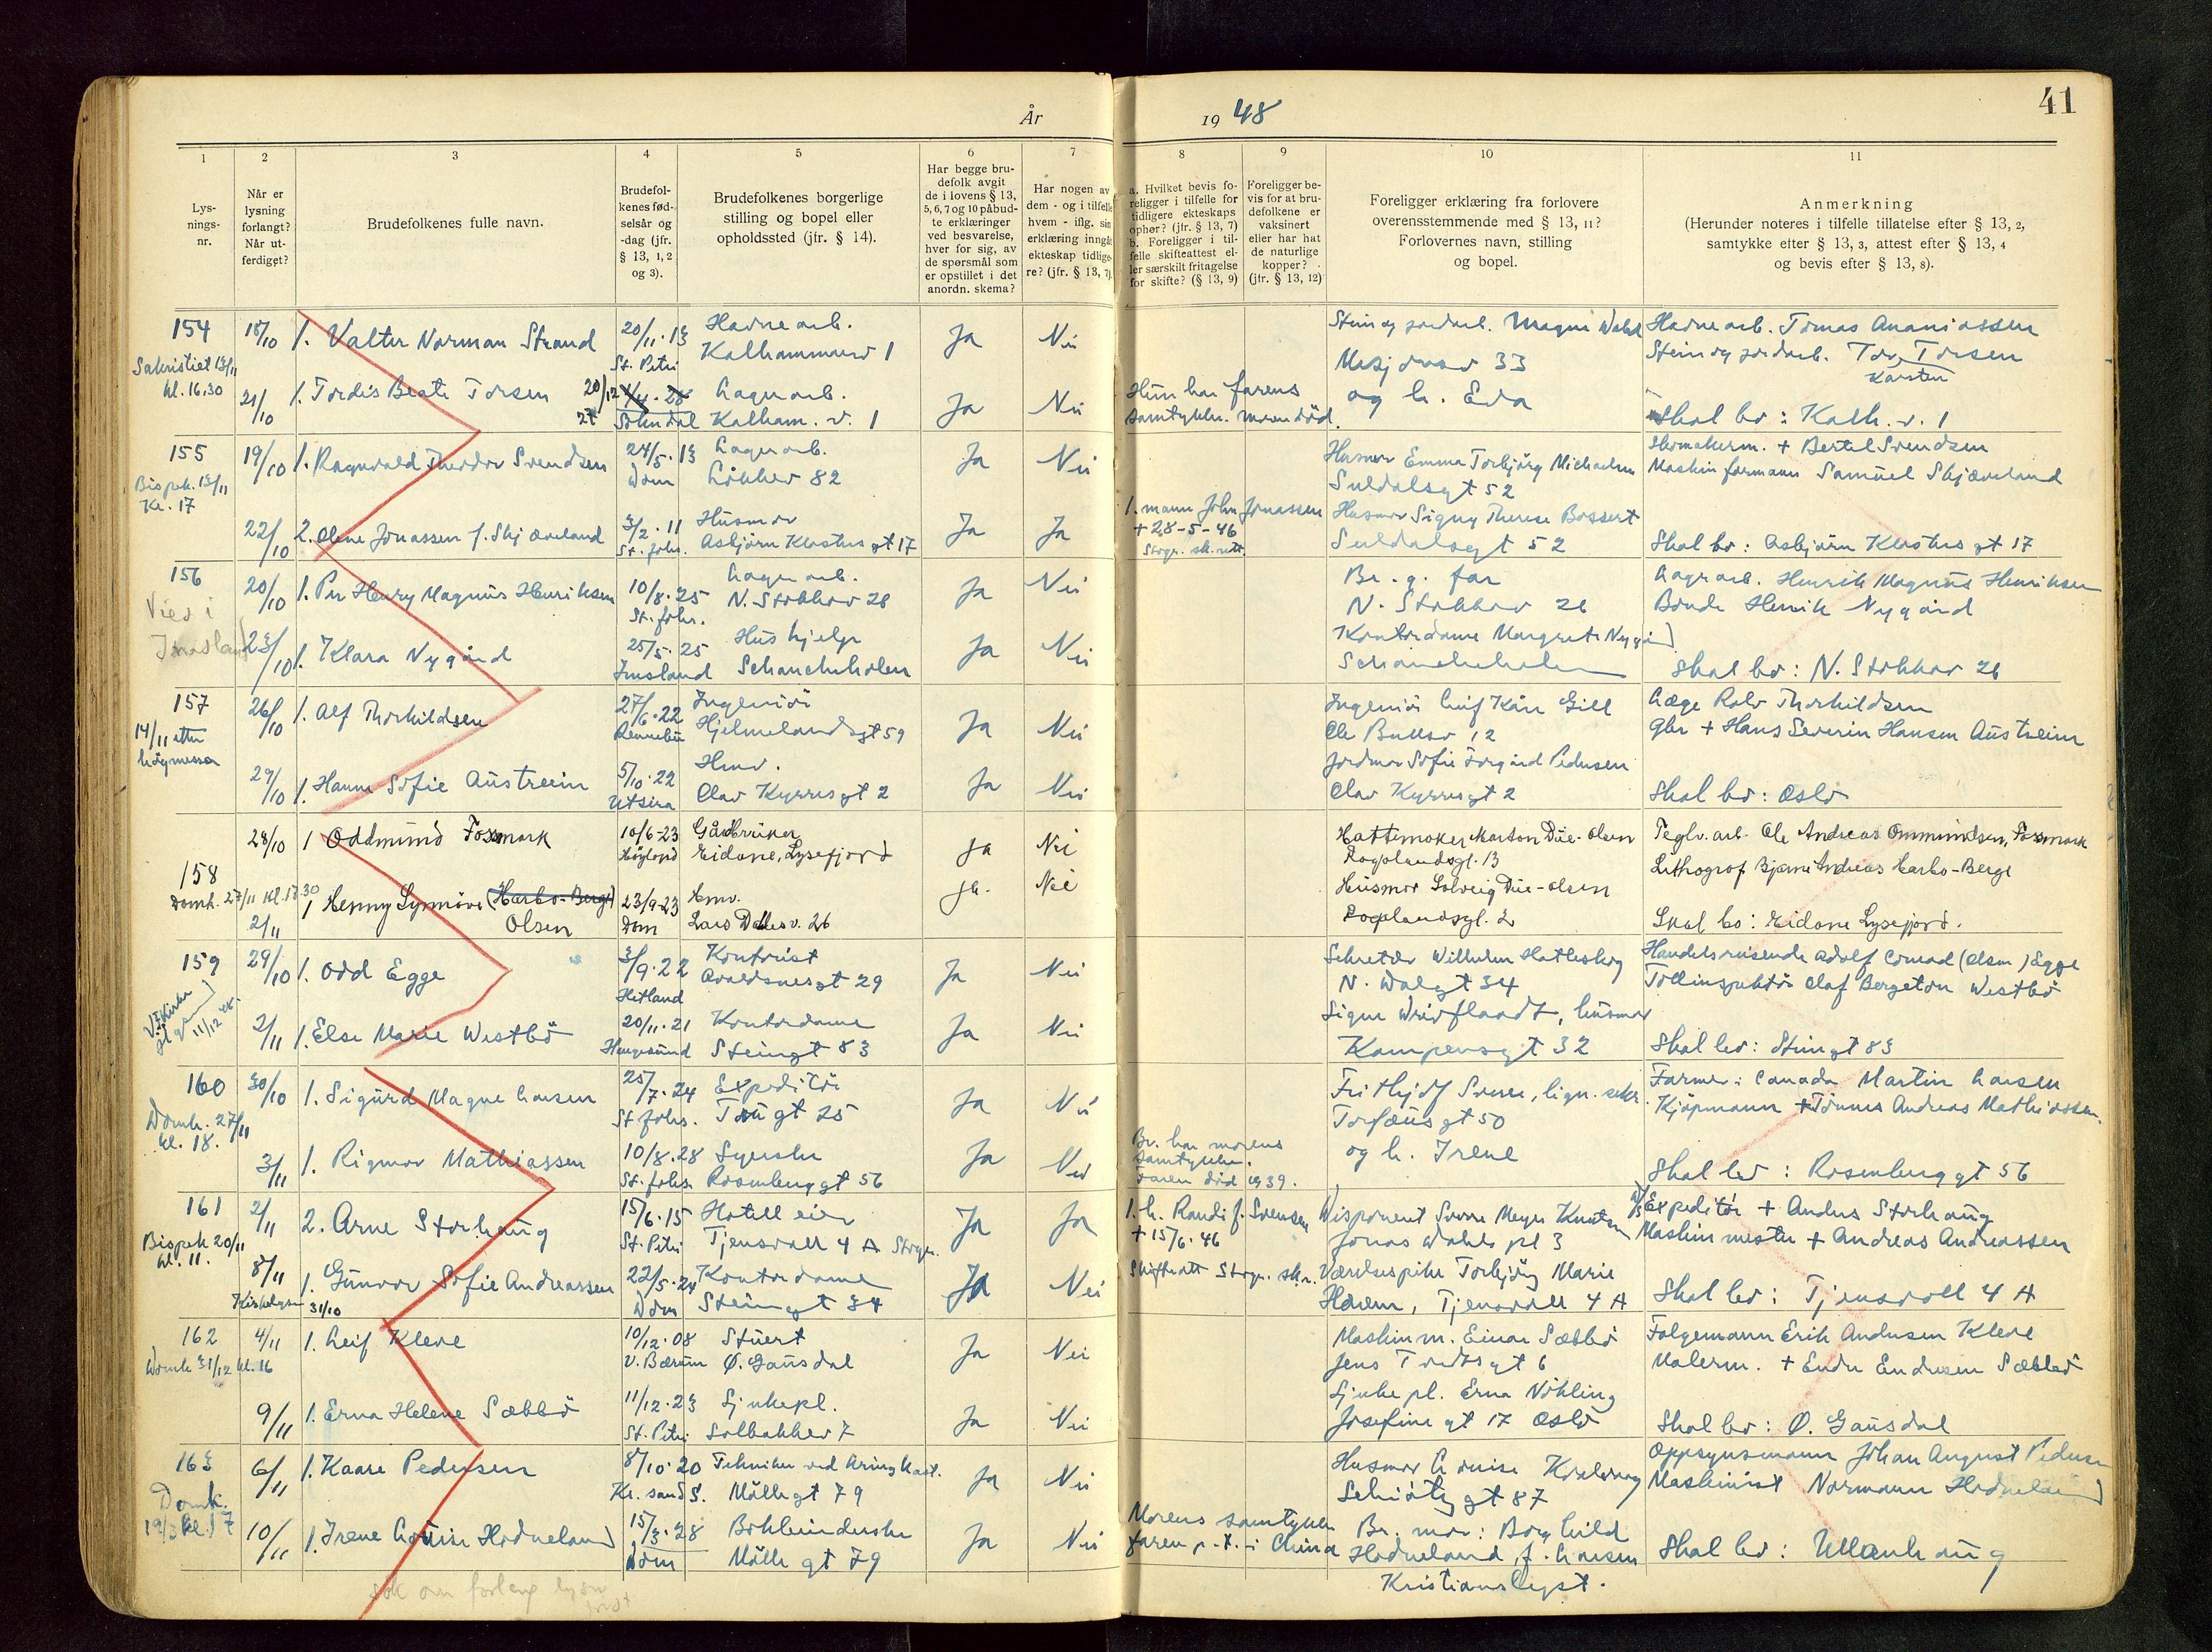 År 19 48
41
1 2 3 4 5 6 7 8 9 10 11
Lysnings-nr.
Når er lysning forlangt? Når utferdiget?
Brudefolkenes fulle navn.
Brudefolkenes fødselsår og -dag (jfr. § 13, 1, 2 og 3).
Brudefolkenes borgerlige stilling og bopel eller opholdssted (jfr. § 14).
Har begge brudefolk avgit de i lovens § 13, 5, 6, 7 og 10 påbudte erklæringer ved besvarelse, hver for sig, av de spørsmål som er opstillet i det anordn. skema?
Har nogen av dem - og i tilfelle hvem - iflg. sin erklæring inngåt ekteskap tidligere? (jfr. § 13, 7)
a. Hvilket bevis foreligger i tilfelle for tidligere ekteskaps ophør? (jfr. § 13, 7) b. Foreligger i tilfelle skifteattest eller særskilt fritagelse for skifte? (§ 13, 9)
Foreligger bevis for at brudefolkene er vaksinert eller har hat de naturlige kopper? (jfr. § 13, 12)
Foreligger erklæring fra forlovere overensstemmende med § 13, 11? Forlovernes navn, stilling og bopel.
Anmerkning
(Herunder noteres i tilfelle tillatelse efter § 13, 2, samtykke efter § 13, 3, attest efter § 13, 4 og bevis efter § 13, 8).
154 18/10 1. Valter Norman Strand 20/11.13 St. Petri Havnearb. Kalhammarv 1 Ja Nei
Stein og jordarb. Magne Wahl Havnearb. Tomas Ananiassen
Sakristiet 13/11 kl. 16.30
Misjonsv 33 Stein og jordarb. Tor Torsen
Karsten
21/10 1. Tordis Beate Torsen 20/12 27 Sokndal Lagerarb. Kalham. v. 1 Ja Nei
Hun har farens samtykke. moren död.
og h. Eva Skal bo: Kalh. v. 1
155 19/10 1. Ragnvald Theodor Svendsen 24/5.13 Dom Lagerarb. Lökkev 82 Ja Nei
Husmor Emma Torbjörg Michaelsen Suldalsgt 52
Skomakerm. + Bertel Svendsen
Maskinformann Samuel Skjæveland
Bispek. 13/11 Kl. 17
22/10 2. Olene Jonassen f. Skjæveland 3/2.11 St. Johs. Husmor Asbjörn Klosters gt 17 Ja Ja
1. mann John Jonassen + 28-5-46 Stvgr. sk.rett.
Husmor Signy Therese Bossert Suldalsgt 52 Skal bo: Asbjörn Klosters gt 17
156 20/10 1. Per Henry Magnus Henriksen 10/8.25 St. Johs. Lagerarb. N. Stokkav 28 Ja Nei
Br.g. far N. Stokkav 28 Lagerarb. Henrik Magnus Henriksen
Bonde Henrik Nygård
Vies i Imsland
23/10 1. Klara Nygård 25/5.25 Imsland Hushjelp Schancheholen Ja Nei
Kontordame Margrete Nygård Schancheholen Skal bo: N. Stokkav 28
157 26/10 1. Alf Thorkildsen 27/6.22 Rennebu Ingeniör Hjelmelandsgt 59 Ja Nei
Ingeniör Leif Kåre Gill Ole Bullsv 12 Læge Rolv Thorkildsen
Gbr + Hans Severin Hansen Austreim
14/11 etter höymessa
29/10 1. Hanne Sofie Austreim 5/10.22 Utsira Hmv. Olav Kyrresgt 2 Ja Nei
Jordmor Sofie Torgård Pedersen Olav Kyrresgt 2 Skal bo: Oslo
158 28/10 1 Oddmund Fossmark 10/6-23 Högsfjord Gårdbruker Eidane, Lysefjord Ja Nei
Hattemaker Marton Due-Olsen Rogalandsgt. 13 Teglv.arb. Ole Andreas Ommundsen, Fossmark
Lithograf Bjarne Andreas Harbo-Berge
Domk. 27/11 kl. 17.30
2/11 1 Henny Synnöve (Harbo-Berge) Olsen 23/9-23 Dom Hmv. Lars Dalles v. 26 ja. Nei
Husmor Solveig Due-Olsen Rogalandsgt. 2 Skal bo: Eidane Lysefjord.
159 29/10 1. Odd Egge 3/9.22 Hetland Kontorist Avaldsnesgt 29 Ja Nei
Sekretær Wilhelm Hatlestog N. Dalgt 34 Handelsreisende Adolf Conrad (Olsen) Egge
Tollinspektör Olaf Bergeton Westbö
2/11 1. Else Marie Westbö 20/11.21 Haugesund Kontordame Steingt 83 Ja Nei
husmor Kampensgt 32 Skal bo: Steingt 83
160 30/10 1. Sigurd Magne Larsen 25/7.24 St. Johs. Expeditör Taugt 25 Ja Nei
Frithjof Svense, lign. sekr. Torfæus gt 50 Farmer i Canada Martin Larsen
Kjöpmann + Tönnes Andreas Mathiassen
Domk. 27/11 kl. 18.
3/11 1. Rigmor Mathiassen 10/8.28 St. Johs. Syerske Rosenberggt 56 Ja Nei
Br. har morens samtykke. Faren död 1939.
og h. Irene Skal bo: Rosenberggt 56
161 2/11 2. Arne Storhaug 15/6.15 St. Petri Hotelleier Tjensvoll 4 A Stvgr. Ja Ja
1. h. Randi f. Svensen + 15/6.46 Skifteatt Stvgr. sk.r.
Disponent Sverre Meyer Knutsen Jonas Dahls pl 3 Expeditör + Anders Storhaug
Maskinmester + Andreas Andreassen
Bispek 20/11 kl. 11.
8/11 1. Gunvor Sofie Andreassen 22/5.24 Dom Kontordame Steingt 34 Ja Nei
31/10
Værelsespike Torbjörg Marie Haven, Tjensvoll 4 A Skal bo: Tjensvoll 4 A
162 4/11 1. Leif Kleve 10/12.08 V. Bærum Stuert Ø. Gausdal Ja Nei
Maskinm. Einar Sæbbö Jens Tvedtsgt 6 Folgemann Erik Andersen Kleve
Malerm. + Endre Endresen Sæbbö
Domk 31/12 kl. 16
9/11 1. Erna Helene Sæbbö 11/12.23 St. Petri Sjukepl. Solbakkev 7 Ja Nei
Sjukepl. Erna Nökling Josefinegt 17 Oslo Skal bo: Ø. Gausdal
163 6/11 1. Kaare Pedersen 8/10.20 Kr. sand S. Tekniker ved Mölle gt 79 Ja Nei
Husmor Louise Schiötz gt 87 Oppsynsmann Johan August Pedersen
Maskinist Normann Hodneland
Domk. 19/3 kl. 17
10/11 1. Irene Louise Hodneland 15/3.28 Dom Bokbinderske Mölle gt 79 Ja Nei
Morens samtykke faren p.t. i China
Br. mor: Borghild Hodneland, f. Larsen Kristianslyst. Skal bo: Ullenhaug
sök om forleng lysn